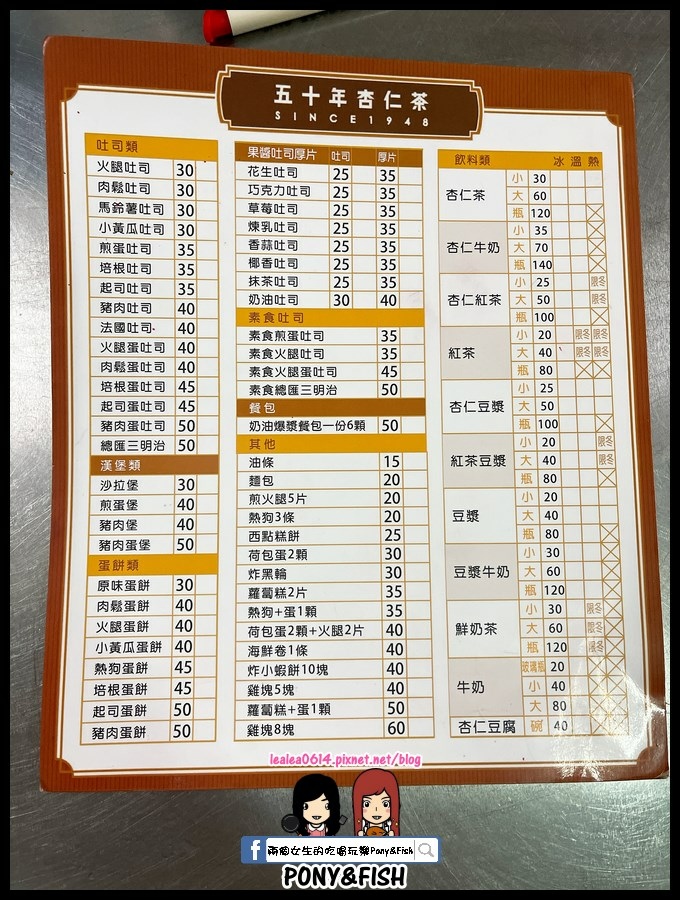 五十年杏仁茶
SINCE1948
吐司類
火腿吐司 30
肉鬆吐司 30
馬鈴薯吐司 30
小黃瓜吐司 30
煎蛋吐司 35
培根吐司 35
起司吐司 35
豬肉吐司 40
法國吐司 40
火腿蛋吐司 40
肉鬆蛋吐司 40
培根蛋吐司 45
起司蛋吐司 45
豬肉蛋吐司 50
總匯三明治 50
漢堡類
沙拉堡 30
煎蛋堡 40
豬肉堡 40
豬肉蛋堡 50
蛋餅類
原味蛋餅 30
肉鬆蛋餅 40
火腿蛋餅 40
小黃瓜蛋餅 40
熱狗蛋餅 45
培根蛋餅 45
起司蛋餅 50
豬肉蛋餅 50
果醬吐司厚片 吐司 厚片
花生吐司 25 35
巧克力吐司 25 35
草莓吐司 25 35
煉乳吐司 25 35
香蒜吐司 25 35
椰香吐司 25 35
抹茶吐司 25 35
奶油吐司 30 40
素食吐司
素食煎蛋吐司 35
素食火腿吐司 35
素食火腿蛋吐司 45
素食總匯三明治 50
餐包
奶油爆漿餐包一份6顆 50
其他
油條 15
麵包 20
煎火腿5片 20
熱狗3條 20
西點糕餅 25
荷包蛋2顆 30
炸黑輪 30
蘿蔔糕2片 35
熱狗+蛋1顆 35
荷包蛋2顆+火腿2片 40
海鮮卷1條 40
炸小蝦餅10塊 40
雞塊5塊 40
蘿蔔糕+蛋1顆 50
雞塊8塊 60
飲料類 冰 溫 熱
杏仁茶 小 30
大 60
瓶 120
杏仁牛奶 小 35
大 70
瓶 140
杏仁紅茶 小 25 限冬
大 50 限冬
瓶 100
紅茶 小 20 限冬 限冬
大 40 限冬 限冬
瓶 80
杏仁豆漿 小 25
大 50
瓶 100
紅茶豆漿 小 20 限冬
大 40 限冬
瓶 80
豆漿 小 20
大 40
瓶 80
豆漿牛奶 小 30
大 60
瓶 120
鮮奶茶 小 30 限冬
大 60 限冬
瓶 120 限冬
牛奶 玻璃瓶 20
小 40
大 80
杏仁豆腐 碗 40
lealea0614.pixnet.net/blog
f 兩個女生的吃喝玩樂Pony&Fish
PONY&FISH